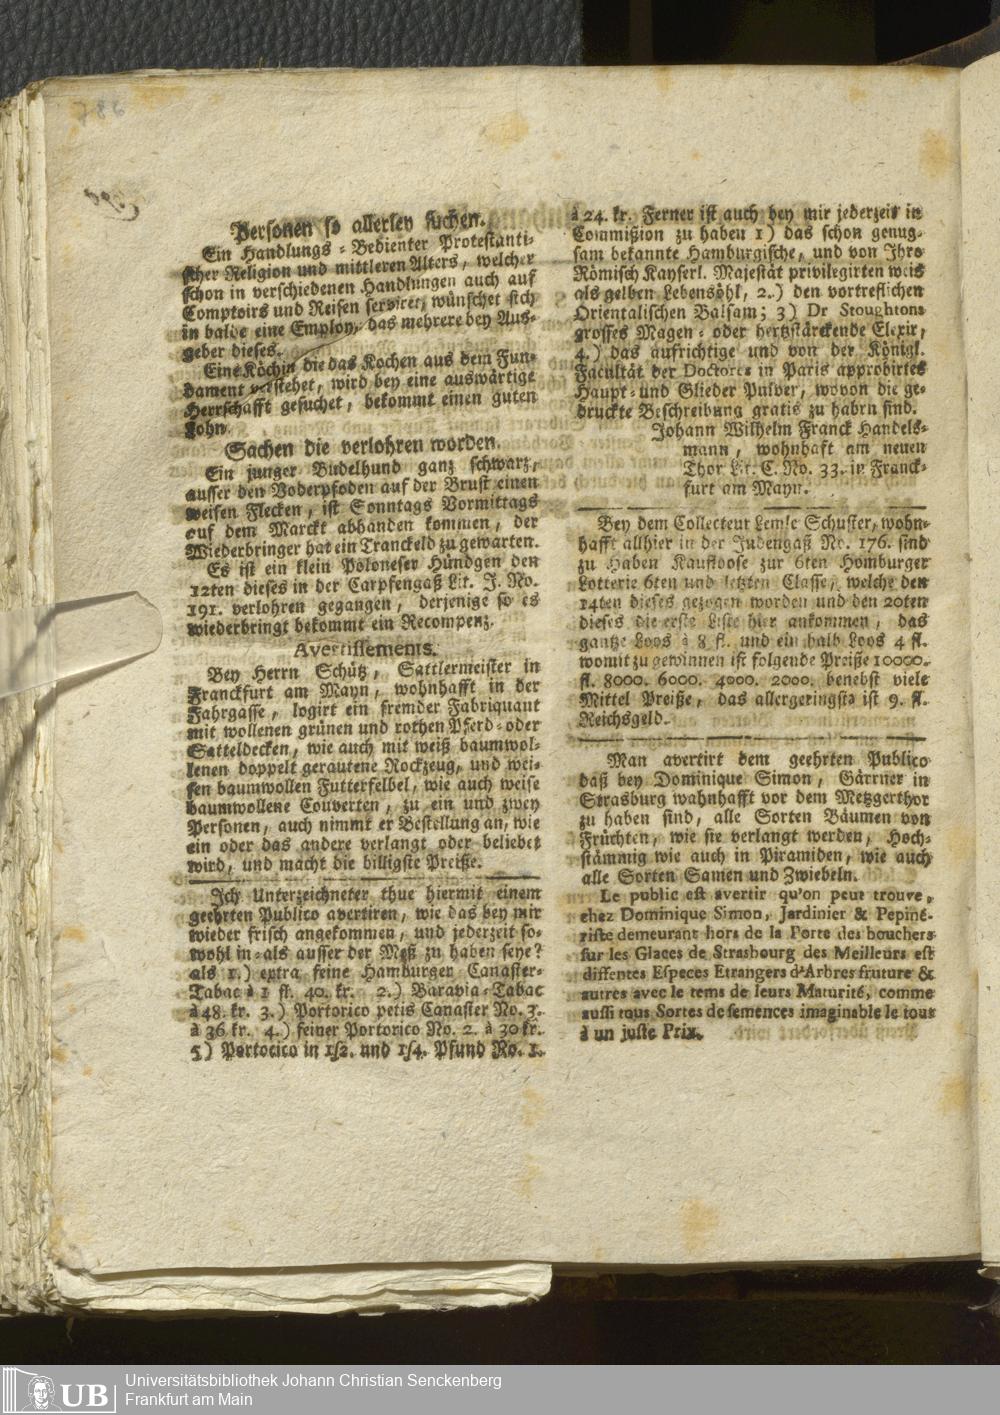 Personen so allerley suchen.
Ein Handlungs-Bedienter Protestanti-
scher Religion und mittleren Alters, welcher
schon in verschiedenen Handlungen auch auf
Comptoirs und Reisen serviret, wünschet sich
in balde eine Employ, das mehrere bey Aus-
geber dieses.
Eine Köchin die das Kochen aus dem Fun-
dament verstehet, wird bey eine auswärtige
Herrschafft gesuchet, bekommt einen guten
Lohn.
Sachen die verlohren worden.
Ein junger Budelhund ganz schwarz,
ausser den Voderpfoden auf der Brust einen
weisen Flecken, ist Sonntags Vormittags
auf dem Marckt abhanden kommen, der
Wiederbringer hat ein Tranckeld zu gewarten.
Es ist ein klein Poloneser Hündgen den
12ten dieses in der Carpfengaß Lit. J. No.
191. verlohren gegangen, derjenige so es
wiederbringt bekommt ein Recompenz.
Avertissements.
Bey Herrn Schütz, Sattlermeister in
Franckfurt am Mayn, wohnhafft in der
Fahrgasse, logirt ein fremder Fabriquant
mit wollenen grünen und rothen Pferd- oder
Satteldecken, wie auch mit weiß baumwol-
lenen doppelt gerautene Rockzeug, und wei-
sen baumwollen Futterfelbel, wie auch weise
baumwollene Couverten, zu ein und zwey
Personen, auch nimmt er Bestellung an, wie
ein oder das andere verlangt oder beliebet
wird, und macht die billigste Preiße.
Ich Unterzeichneter thue hiermit einem
geehrten Publico avertiren, wie das bey mir
wieder frisch angekommen, und jederzeit so-
wohl in- als ausser der Meß zu haben seye?
als 1.) extra feine Hamburger Canaster-
Tabac à 1 fl. 40. kr. 2.) Baravia-Tabac
à 48. kr. 3.) Portorico petis Canaster No. 3.
à 36 kr. 4.) feiner Portorico No. 2. à 30 kr.
5) Portocico in 1/2. und 1/4. Pfund No. 1.
à 24. kr. Ferner ist auch bey mir jederzeit in
Commißion zu haben 1) das schon genug-
sam bekannte Hamburgische, und von Ihro
Römisch Kayserl. Majestät privilegirten weis
als gelben Lebensöhl, 2.) den vortreflichen
Orientalischen Balsam; 3) Dr Stoughtons
grosses Magen- oder hertzstärckende Elexir,
4.) das aufrichtige und von der Königl.
Facultät der Doctores in Paris approbirtes
Haupt- und Glieder Pulver, wovon die ge-
druckte Beschreibung gratis zu habrn sind.
Johann Wilhelm Franck Handels-
mann, wohnhaft am neuen
Thor Lit. C. No. 33. in Franck-
furt am Mayn.
Bey dem Collecteur Lemle Schuster, wohn-
hafft allhier in der Judengaß No. 176. sind
zu Haben Kaufloose zur 6ten Homburger
Lotterie 6ten und letzten Classe, welche den
14ten dieses gezogen worden und den 20ten
dieses die erste Liste hier ankommen, das
gantze Loos à 8 fl. und ein halb Loos 4 fl.
womit zu gewinnen ist folgende Preiße 10000.
fl. 8000. 6000. 4000. 2000. benebst viele
Mittel Preiße, das allergeringsta ist 9. fl.
Reichsgeld.
Man avertirt dem geehrten Publico
daß bey Dominique Simon, Gärrner in
Strasburg wahnhafft vor dem Metzgerthor
zu haben sind, alle Sorten Bäumen von
Früchten, wie sie verlangt werden, Hoch-
stämmig wie auch in Piramiden, wie auch
alle Sorten Samen und Zwiebeln.
Le public est avertir qu'on peut trouve,
chez Dominique Simon, Jardinier & Pepiné-
riste demeurant hors de la Porte des bouchers
sur les Glaces de Strasbourg des Meilleurs est
diffentes Especes Etrangers d'Arbres fruture &
autres avec le tems de leurs Maturité, comme
aussi tous Sortes de semences imaginable le tous
à un juste Prix.
UB
Universitätsbibliothek Johann Christian Senckenberg
Frankfurt am Main